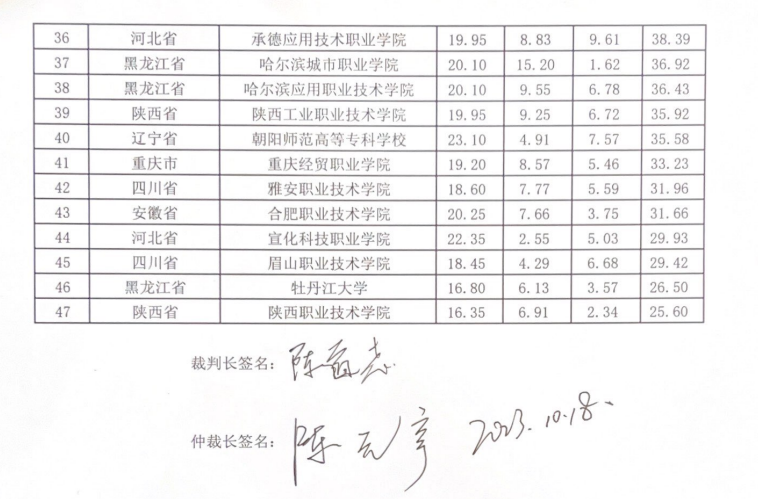 36 河北省 承德应用技术职业学院 19.95 8.83 9.61 38.39
37 黑龙江省 哈尔滨城市职业学院 20.10 15.20 1.62 36.92
38 黑龙江省 哈尔滨应用职业技术学院 20.10 9.55 6.78 36.43
39 陕西省 陕西工业职业技术学院 19.95 9.25 6.72 35.92
40 辽宁省 朝阳师范高等专科学校 23.10 4.91 7.57 35.58
41 重庆市 重庆经贸职业学院 19.20 8.57 5.46 33.23
42 四川省 雅安职业技术学院 18.60 7.77 5.59 31.96
43 安徽省 合肥职业技术学院 20.25 7.66 3.75 31.66
44 河北省 宣化科技职业学院 22.35 2.55 5.03 29.93
45 四川省 眉山职业技术学院 18.45 4.29 6.68 29.42
46 黑龙江省 牡丹江大学 16.80 6.13 3.57 26.50
47 陕西省 陕西职业技术学院 16.35 6.91 2.34 25.60
裁判长签名: 陈
仲裁长签名: 陈元亨 2023.10.18.